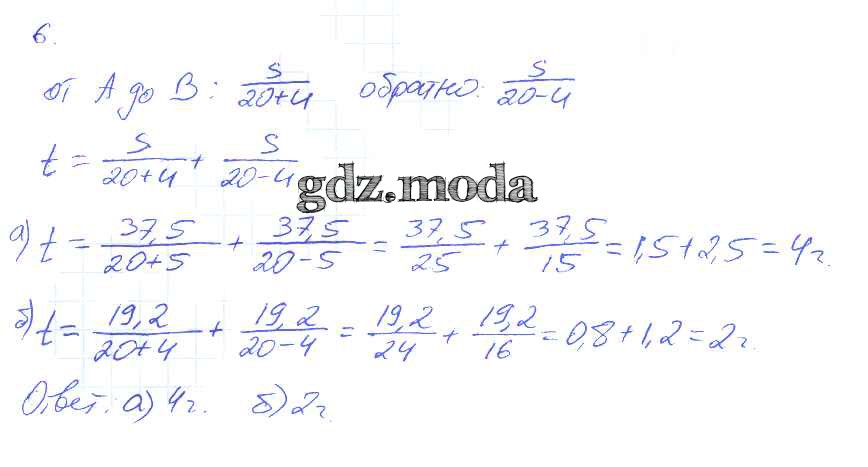 6.
от А до В: s/(20+u) обратно: s/(20-u)
t = s/(20+u) + s/(20-u)
gdz.moda
а) t = 37,5/(20+5) + 37,5/(20-5) = 37,5/25 + 37,5/15 = 1,5+2,5 = 4г.
б) t = 19,2/(20+4) + 19,2/(20-4) = 19,2/24 + 19,2/16 = 0,8+1,2 = 2г.
Ответ: а) 4г. б) 2г.